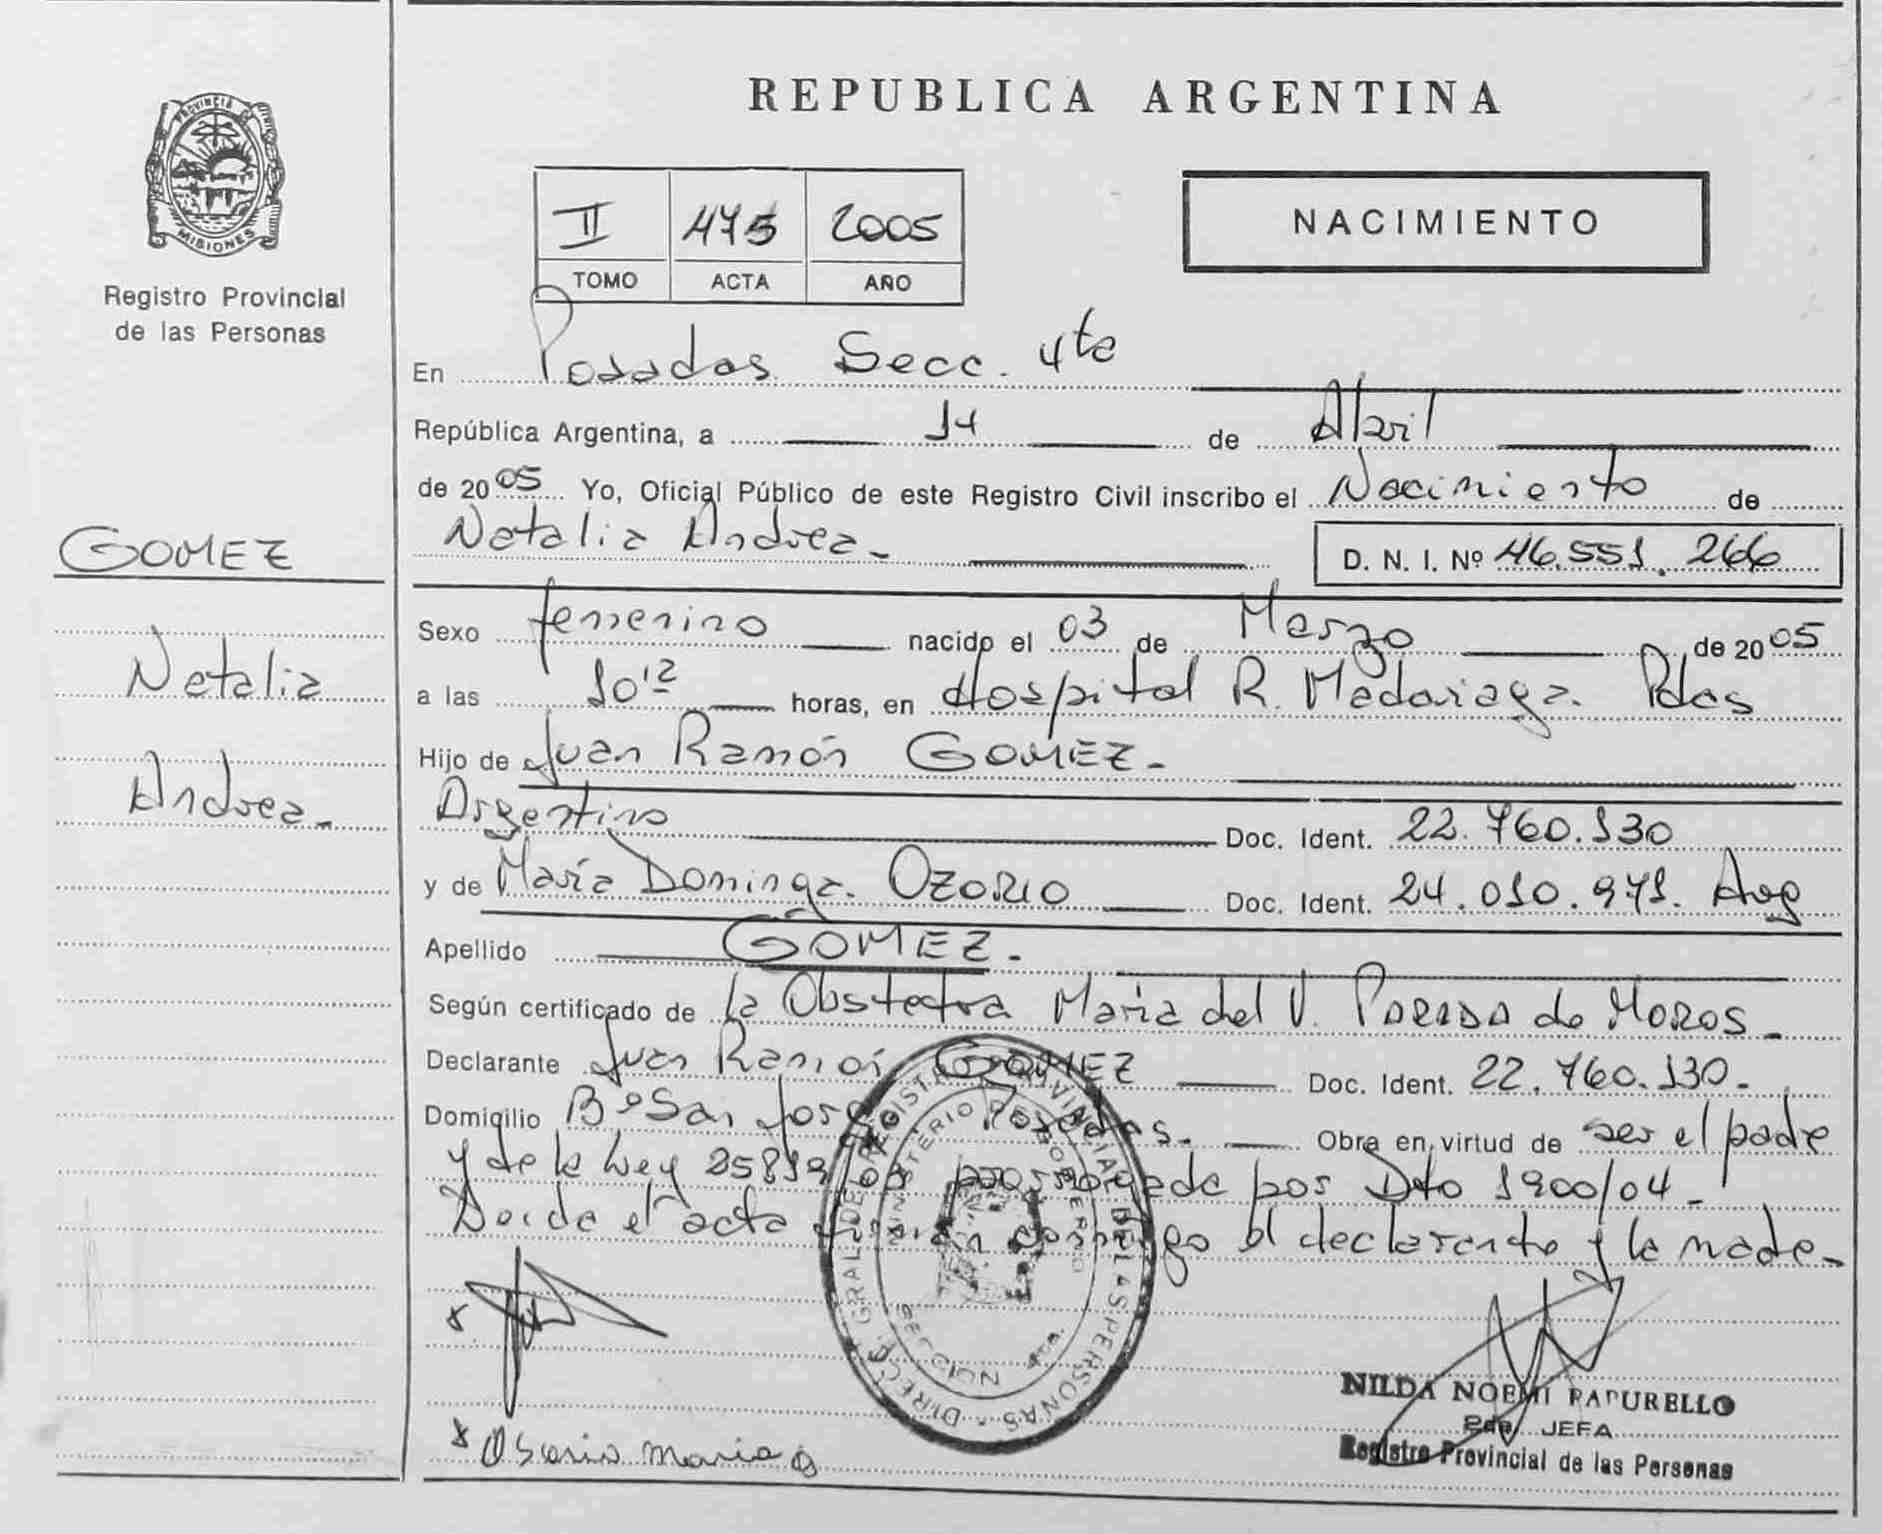 REPUBLICA ARGENTINA
PROVINCIA
MISIONES
Registro Provincial
de las Personas
II 475 2005
TOMO ACTA AÑO
NACIMIENTO
En Posadas Secc. 4ta
República Argentina, a 14 de Abril
de 2005 Yo, Oficial Público de este Registro Civil inscribo el Nacimiento de
Natalia Andrea.
D. N. I. Nº 46.551.266
GOMEZ
Natalia
Andrea.
Sexo femenino nacido el 03 de Marzo de 2005
a las 10¹² horas, en Hospital R. Madariaga. Pdas
Hijo de Juan Ramón GOMEZ.
Argentino Doc. Ident. 22.760.130
y de María Dominga. OZORIO Doc. Ident. 24.010.971. Arg
Apellido GOMEZ.
Según certificado de la Obstetra Maria del V. PARADA de MOROS.
Declarante Juan Ramón GOMEZ Doc. Ident. 22.760.130.
Domicilio Bº San Jorge Posadas. Obra en virtud de ser el padre
y de la Ley 25819/03 prorrogada por Dto 1900/04.
Leida el acta firman conmigo el declarante y la madre.
Osorio Maria D
DIRECC. GRAL. DE REGISTRO PROVINCIAL DE LAS PERSONAS
MINISTERIO DE GOBIERNO
SECCION 4ta.
NILDA NOEMI PAPURELLO
2da. JEFA
Registro Provincial de las Personas